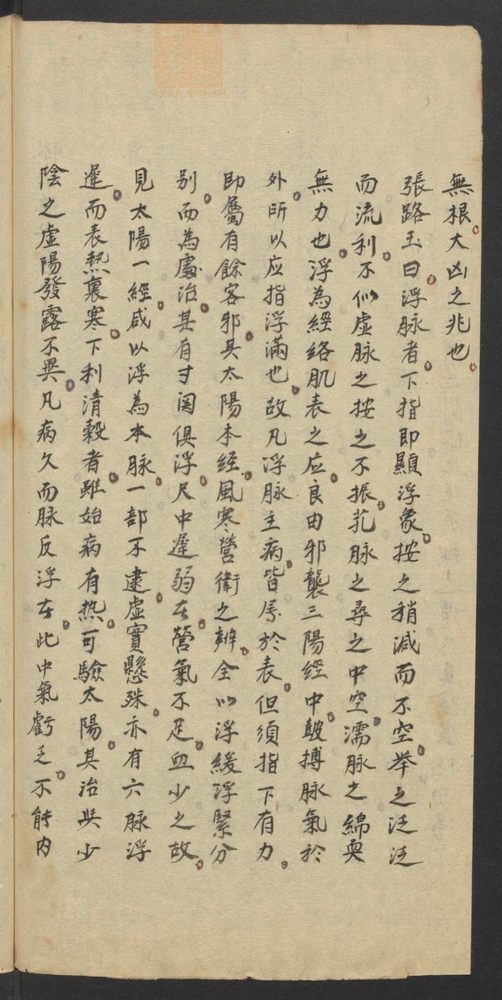 無根大凶之兆也
張路玉曰浮脉者下指即顯浮象按之稍減而不空舉之泛泛
而流利不似虛脉之按之不振芤脉之尋之中空濡脉之綿耎
無力也浮為經絡肌表之应良由邪襲三陽經中鼓搏脉氣於
外所以应指浮滿也故凡浮脉主病皆属於表但須指下有力
即屬有餘客邪其太陽本經風寒營衛之辨全以浮緩浮緊分
别而為處治其有寸関俱浮尺中遲弱者營氣不足血少之故
見太陽一經咸以浮為本脉一部不逮虛實懸殊亦有六脉浮
遲而表熱裏寒下利清穀者雖始病有热可驗太陽其治與少
陰之虛陽發露不異凡病久而脉反浮者此中氣虧乏不能内